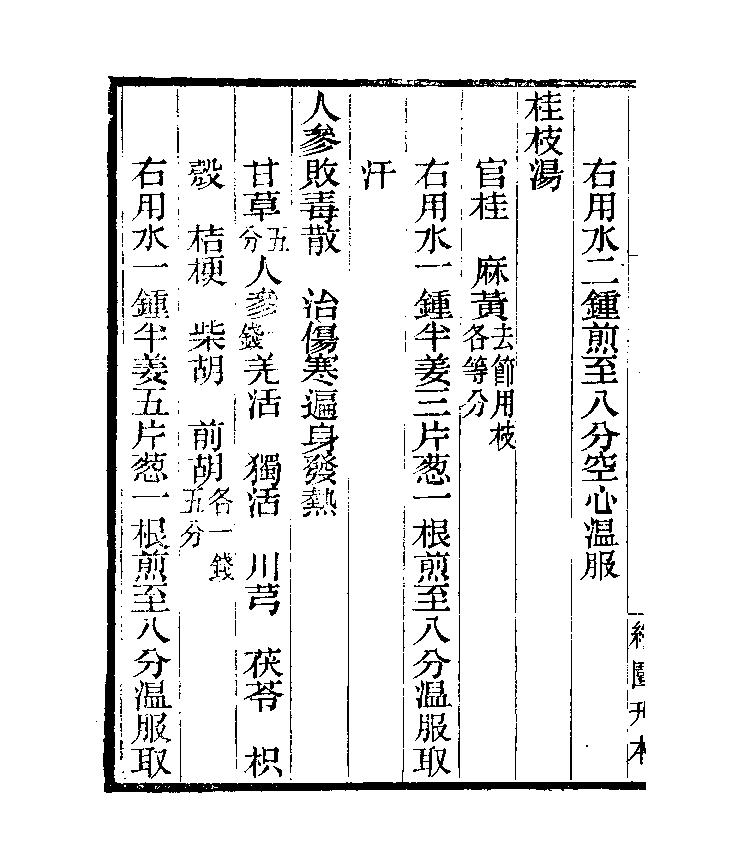 右用水二鍾煎至八分空心温服
桂枝湯
官桂　麻黃去節用枝各等分
右用水一鍾半姜三片葱一根煎至八分温服取
汗
人參敗毒散　治傷寒遍身發熱
甘草五分人參錢羌活　獨活　川芎　茯苓　枳
殼　桔梗　柴胡　前胡各一錢五分
右用水一鍾半姜五片葱一根煎至八分温服取
園刋本